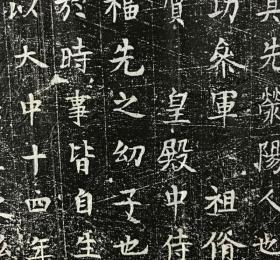 其先滎陽人也
功參軍 祖脩
賓 皇殿中侍
福先之幼子也
於時事皆自生
以大中十四年